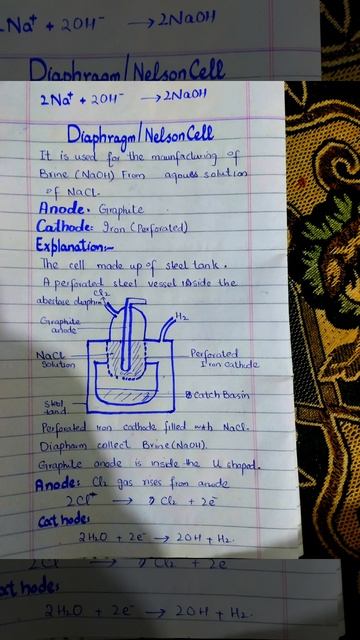 2Na⁺ + 2OH⁻ → 2NaOH
Diaphragm/Nelson Cell
2Na⁺ + 2OH⁻ → 2NaOH
Diaphragm/Nelson Cell
It is used for the maunfacturing of
Brine (NaOH) From aqoues solution
of NaCl.
Anode. Graphite
Cathode: Iron (Perforated)
Explanation:-
The cell made up of steel tank.
A perforated steel vessel inside the
Cl₂
H₂
Graphite anode
NaCl solution
Perforated Iron cathode
Catch Basin
Steel tand
Perforated Iron cathode filled with NaCl.
Diapharm collect Brine (NaOH).
Graphite anode is inside the U shaped.
Anode: Cl₂ gas rises from anode
2Cl⁺ → Cl₂ + 2e⁻
Cathode:
2H₂O + 2e⁻ → 2OH + H₂.
2Cl → Cl₂ + 2e
Cathode:
2H₂O + 2e⁻ → 2OH + H₂.